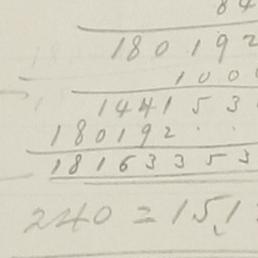 84
180192
100
144153
180192 . .
18163353
240 = 151